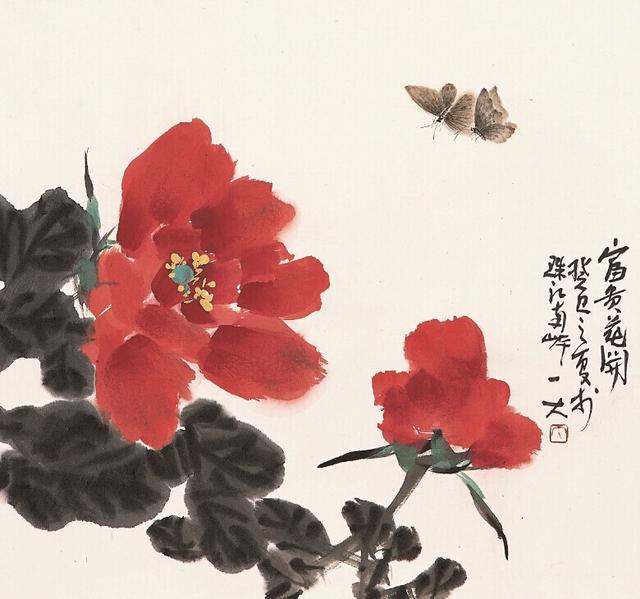 富贵花開
癸巳之夏於
珠江南岸一大